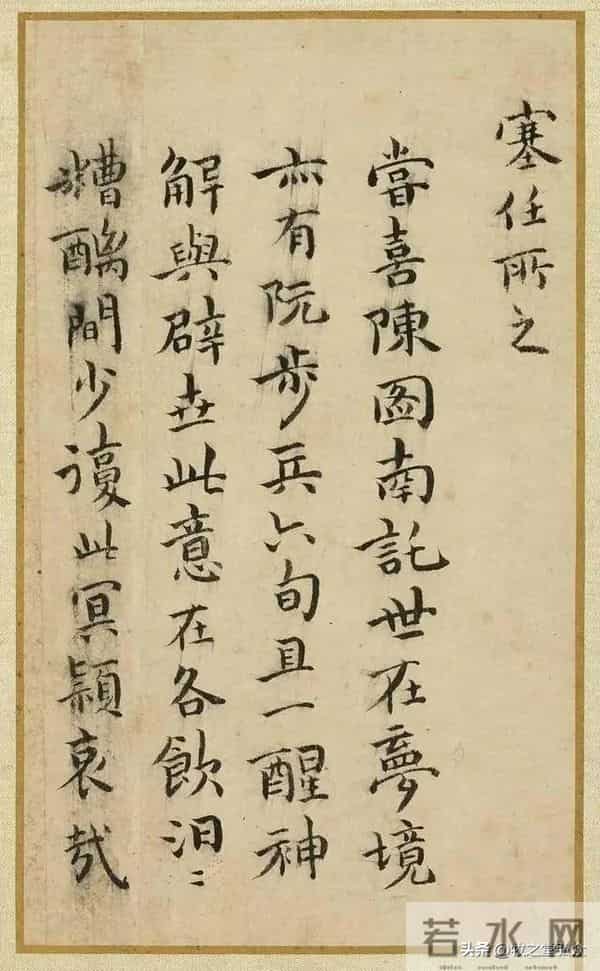 塞任所之
嘗喜陳圖南託世在夢境
亦有阮步兵六旬且一醒神
解與辟世此意在各飲汩〻
糟醨間少此冥穎哀哉
若水网
头条